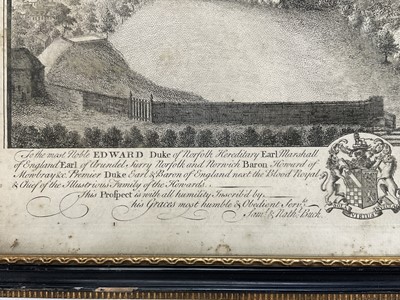 To the most Noble EDWARD Duke of Norfolk Hereditary Earl Marshall
of England Earl of Arundel, Surry Norfolk and Norwich Baron Howard of
Mowbray &c. Premier Duke Earl & Baron of England next the Blood Royal
& Chief of the Illustrious Family of the Howards.
This Prospect is with all humility Inscrib'd by
his Graces most humble & Obedient Servts.
Saml. & Nathl. Buck.